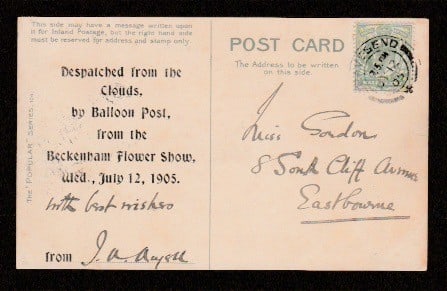 This side may have a message written upon
it for Inland Postage, but the right hand side
must be reserved for address and stamp only.
THE "POPULAR" SERIES
Despatched from the
Clouds,
by Balloon Post,
from the
Beckenham Flower Show,
Wed., July 12, 1905.
with best wishes
from J. A.
POST CARD
The Address to be written
on this side.
Miss Gordon
8 South Cliff Avenue
Eastbourne